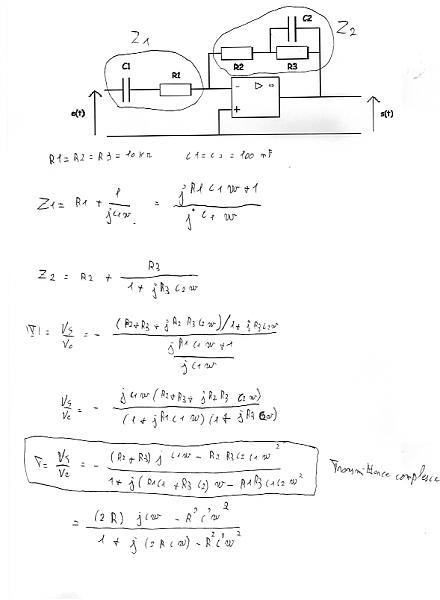 Z1
Z2
C2
C1
R1
R2
R3
e(t)
s(t)
- ▷ ∞
+
R1=R2=R3=10 kΩ C1=C2=100 nF
Z1= R1 + 1/(jC1w) = (jR1C1w+1)/(jC1w)
Z2 = R2 + R3/(1+jR3C2w)
T1= Vs/Ve = - ((R2+R3+jR2R3C2w)/1+jR3C2w)/((jR1C1w+1)/(jC1w))
Vs/Ve = - (jC1w(R2+R3+jR2R3C2w))/((1+jR1C1w)(1+jR3C2w))
T= Vs/Ve = - ((R2+R3)jC1w-R2R3C2C1w²)/(1+j(R1C1+R3C2)w-R1R3C1C2w²) Transmittance complexe
= ((2R)jCw-R²C²w²)/(1+j(2RCw)-R²C²w²)